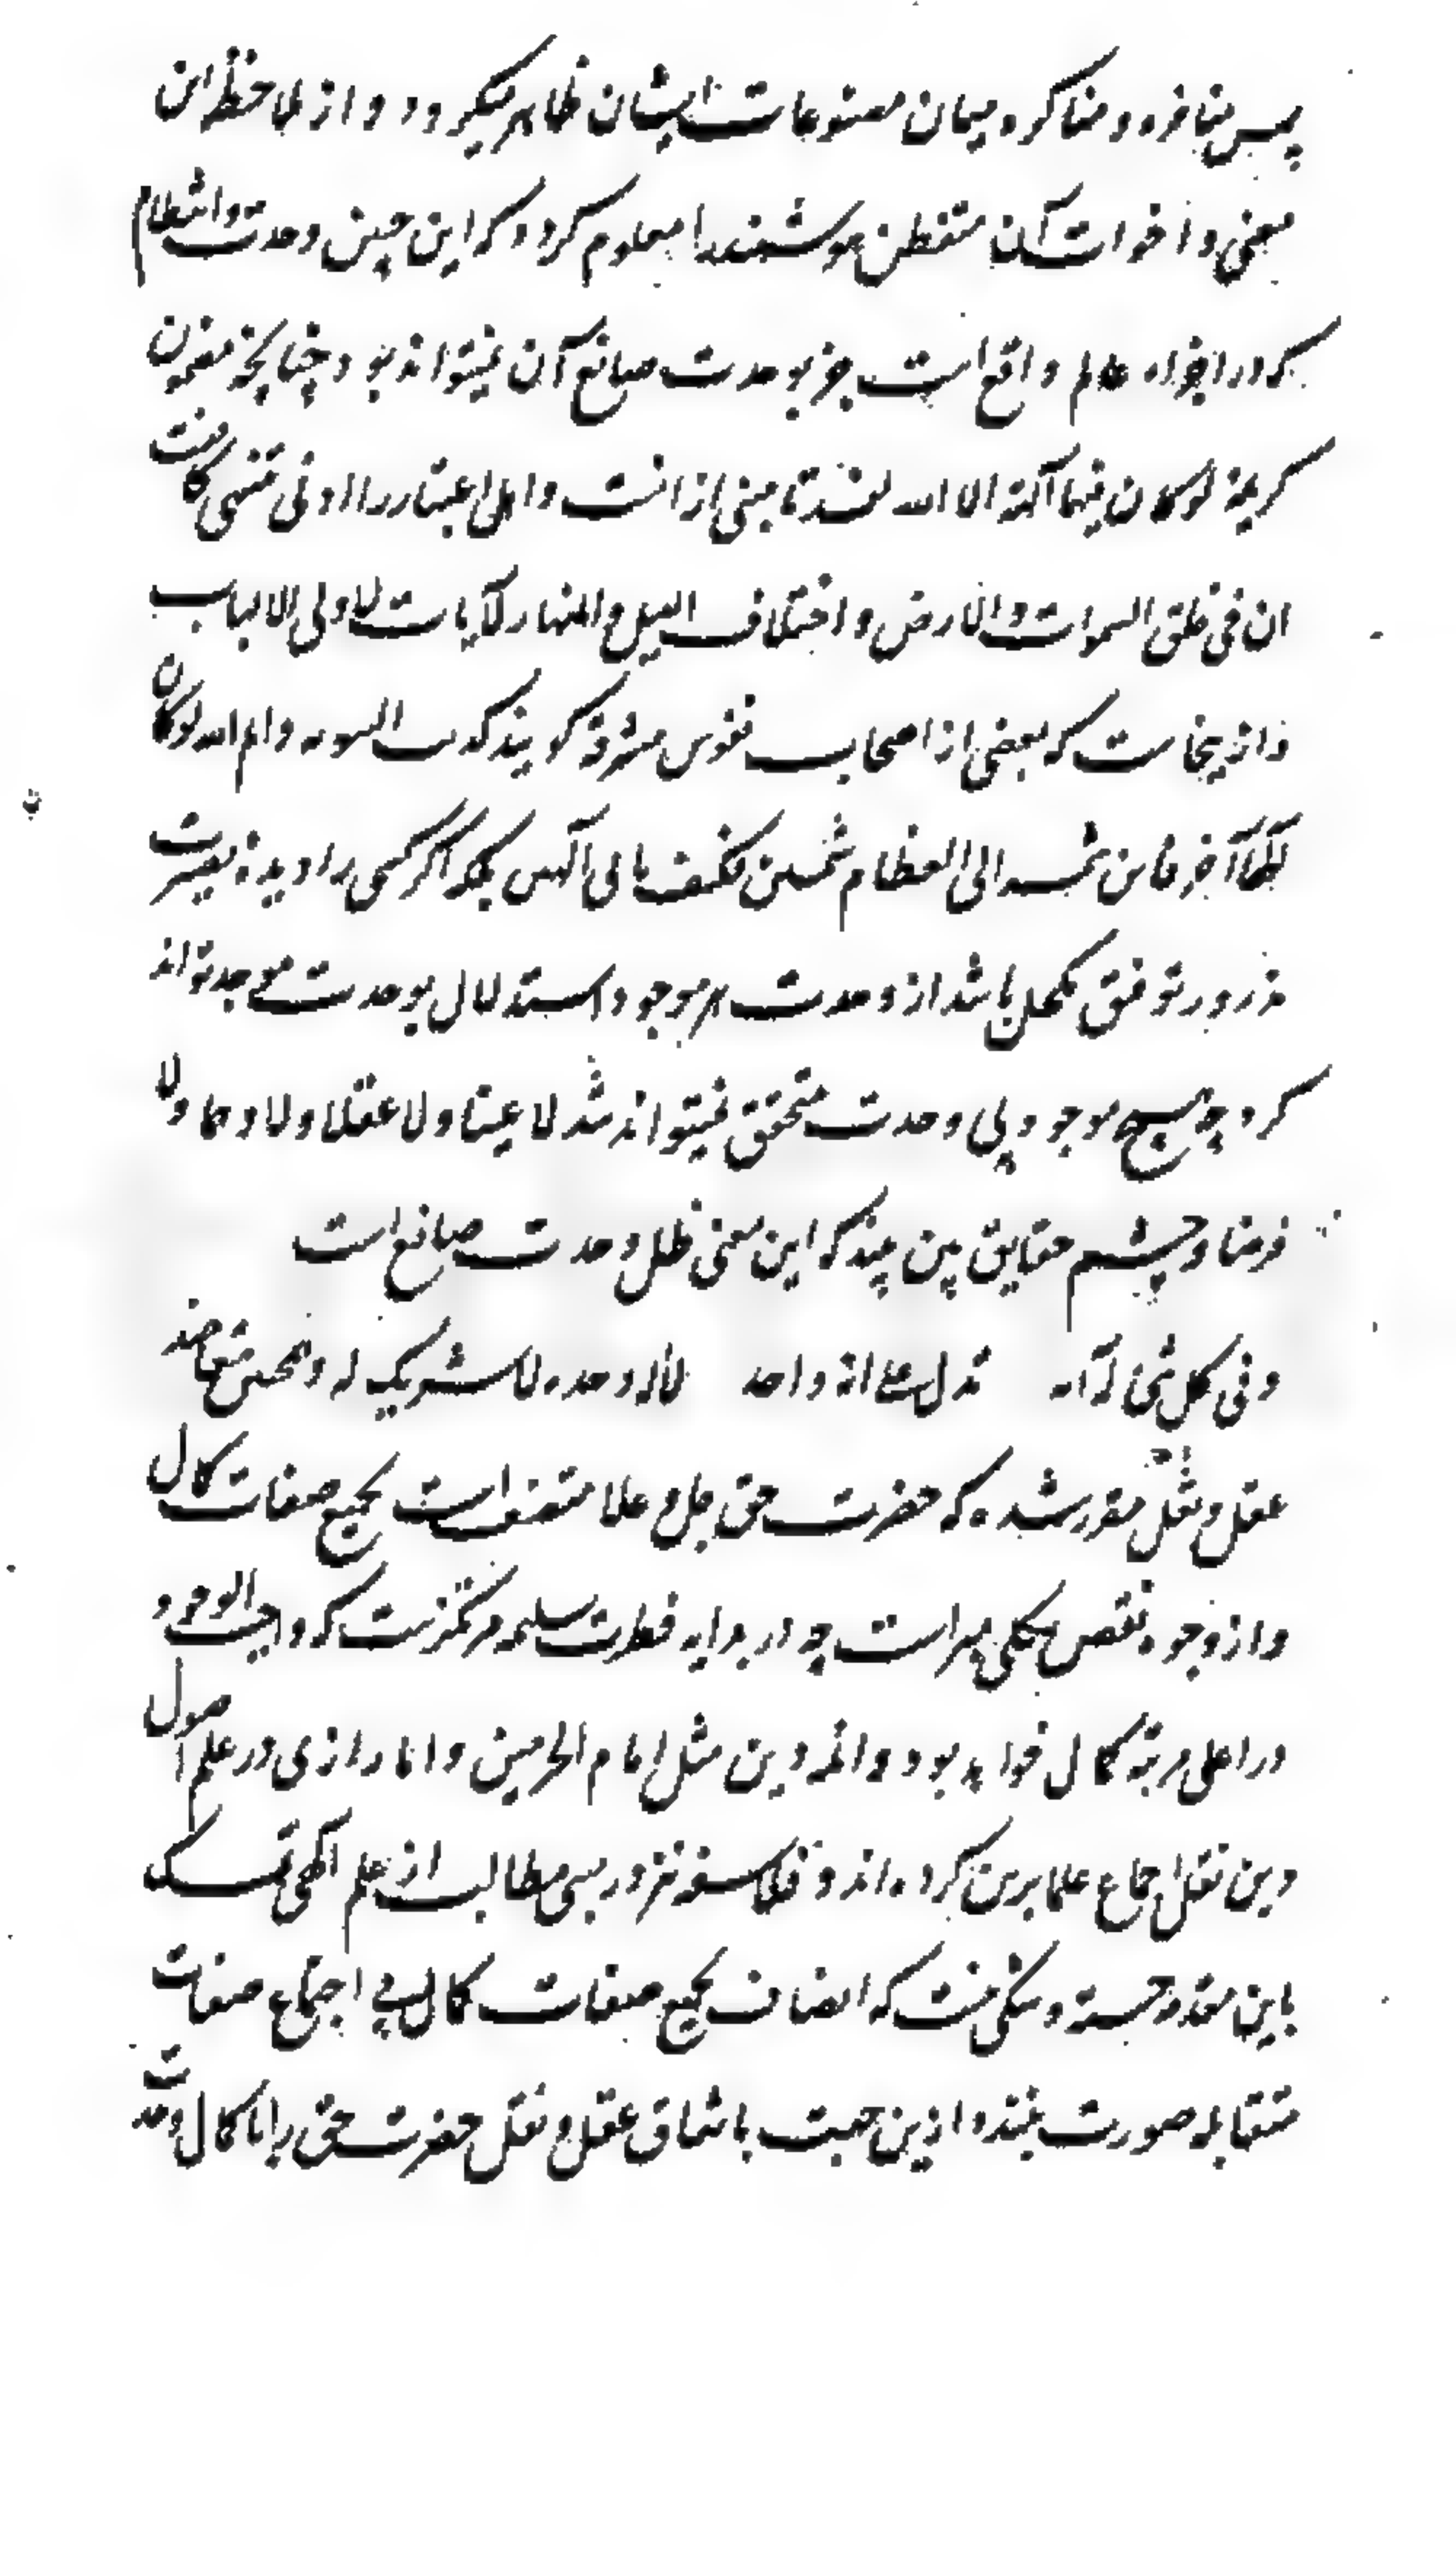 پس منافره و مناکره میان مصنوعات ایشان ظاهر میگردد و از ملاحظه این
معنی و اخوات آن متفطن هوشمند را معلوم کردد که این چنین وحدت و انتظام
که در اجزاء عالم واقع است جز بوحدت صانع آن نمیتواند بود چنانچه مضمون
کریمه لوکان فیهما آلهة الا الله لفسدتا مبنی از انست و اهل اعتبار را ادنی تنبهی کافیست
ان فی خلق السموات والارض و اختلاف اللیل والنهار لآیات لاولی الالباب
و ازینجاست که بعضی از اصحاب نفوس مشرقه کویند که وایم الله لوکان
آلها آخر فاین شمسه الی العظام شمسین فکیف بالهین بلکه اکر کسی را دیده بصیرت
بذرور توفیق مکحل باشد از وحدت هر موجود استدلال بوحدت موجد تواند
کرد چه هیچ موجود بی وحدت متحقق نمیتواند شد لا عینا ولا عقلا ولا وهما ولا
فرضا و چشم حقایق بین بیند که این معنی ظل وحدت صانع است
وفی کل شئ له آیه تدل علی انه واحد لا اله وحده لا شریک له و بمحض تعاضد
عقل و نقل مقرر شده که حضرت حق جل و علا متصف است بجمیع صفات کمال
و از وجوه نقص بکلی مبراست چه در بدایه فطرت سلیمه مرتکزست که واجب الوجود
در اعلی مرتبه کمال خواهد بود و ائمه دین مثل امام الحرمین و امام رازی در علم اصول
دین نقل اجماع علما برین کرده‌اند و فلاسفه نیز در بسی مطالب از علم الهی تمسک
باین مقدمه جسته و شکی نیست که اتصاف بجمیع صفات کمال بی اجتماع صفات
متقابله صورت نبندد و ازین جهت باتفاق عقل و نقل حضرت حق را با کمال وحدت